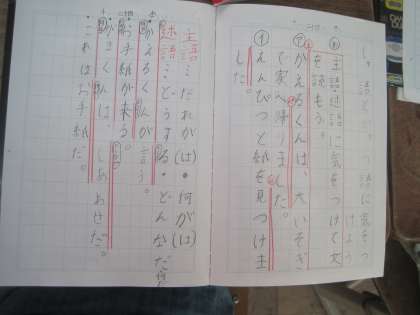 しゅ語とじゅつ語に気をつけよう
㋱主語と述語に気をつけて文
を読もう。
㋐かえるくんは、大いそぎ
で家へ帰りました。
㋑えんぴつと紙を見つけま
した。
主語…だれが(は)・何が(は)
述語…どうする・どんなだ
かえるくんが言う。
お手紙が来る。
かえるくんは、しあわせだ。
これはお手紙だ。